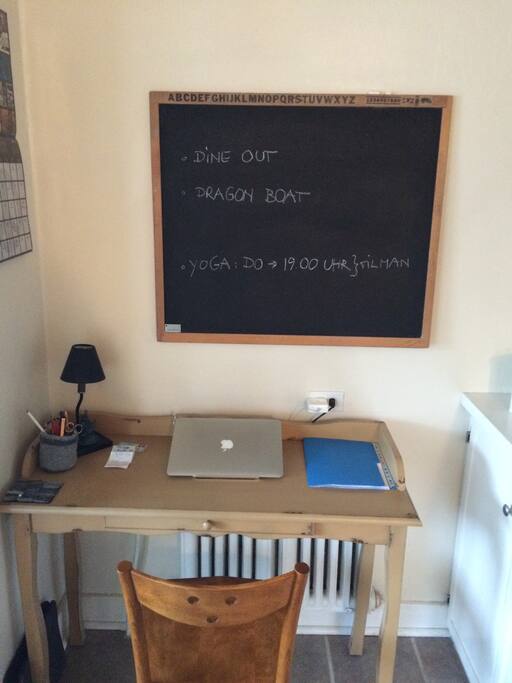 ABCDEFGHIJKLMNOPQRSTUVWXYZ
◦ DINE OUT
◦ DRAGON BOAT
◦ YOGA: DO → 19.00 UHR } TILMAN